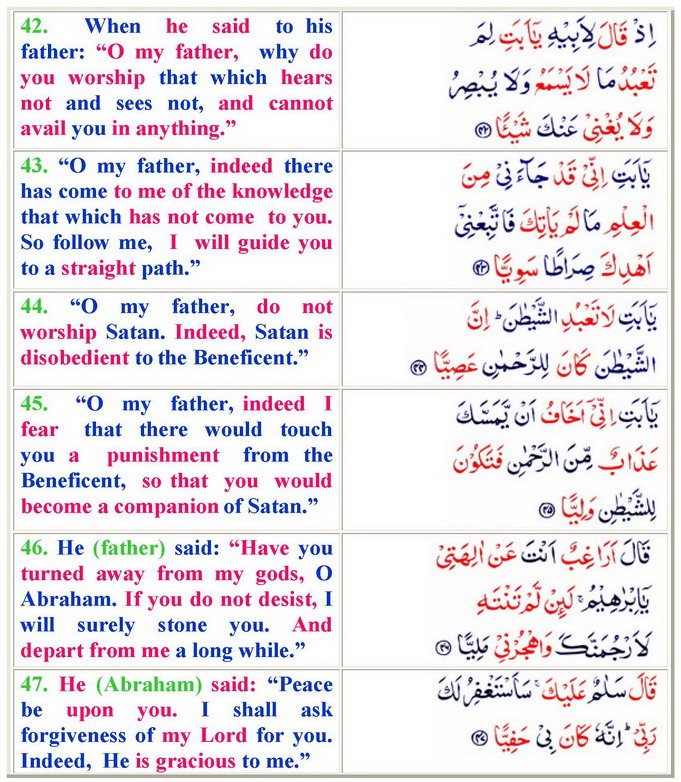 42. When he said to his
father: “O my father, why do
you worship that which hears
not and sees not, and cannot
avail you in anything.”
اِذْ قَالَ لِاَبِيْهِ يٰۤاَبَتِ لِمَ
تَعْبُدُ مَا لَا يَسْمَعُ وَلَا يُبْصِرُ
وَلَا يُغْنِيْ عَنْكَ شَيْئًا ﴿۴۲﴾
43. “O my father, indeed there
has come to me of the knowledge
that which has not come to you.
So follow me, I will guide you
to a straight path.”
يٰۤاَبَتِ اِنِّيْ قَدْ جَآءَنِيْ مِنَ
الْعِلْمِ مَا لَمْ يَاْتِكَ فَاتَّبِعْنِيْۤ
اَهْدِكَ صِرَاطًا سَوِيًّا ﴿۴۳﴾
44. “O my father, do not
worship Satan. Indeed, Satan is
disobedient to the Beneficent.”
يٰۤاَبَتِ لَا تَعْبُدِ الشَّيْطٰنَ ؕ اِنَّ
الشَّيْطٰنَ كَانَ لِلرَّحْمٰنِ عَصِيًّا ﴿۴۴﴾
45. “O my father, indeed I
fear that there would touch
you a punishment from the
Beneficent, so that you would
become a companion of Satan.”
يٰۤاَبَتِ اِنِّيْۤ اَخَافُ اَنْ يَّمَسَّكَ
عَذَابٌ مِّنَ الرَّحْمٰنِ فَتَكُوْنَ
لِلشَّيْطٰنِ وَلِيًّا ﴿۴۵﴾
46. He (father) said: “Have you
turned away from my gods, O
Abraham. If you do not desist, I
will surely stone you. And
depart from me a long while.”
قَالَ اَرَاغِبٌ اَنْتَ عَنْ اٰلِهَتِيْ
يٰۤاِبْرٰهِيْمُ ۚ لَئِنْ لَّمْ تَنْتَهِ
لَاَرْجُمَنَّكَ وَاهْجُرْنِيْ مَلِيًّا ﴿۴۶﴾
47. He (Abraham) said: “Peace
be upon you. I shall ask
forgiveness of my Lord for you.
Indeed, He is gracious to me.”
قَالَ سَلٰمٌ عَلَيْكَ ۚ سَاَسْتَغْفِرُ لَكَ
رَبِّيْ ؕ اِنَّهٗ كَانَ بِيْ حَفِيًّا ﴿۴۷﴾